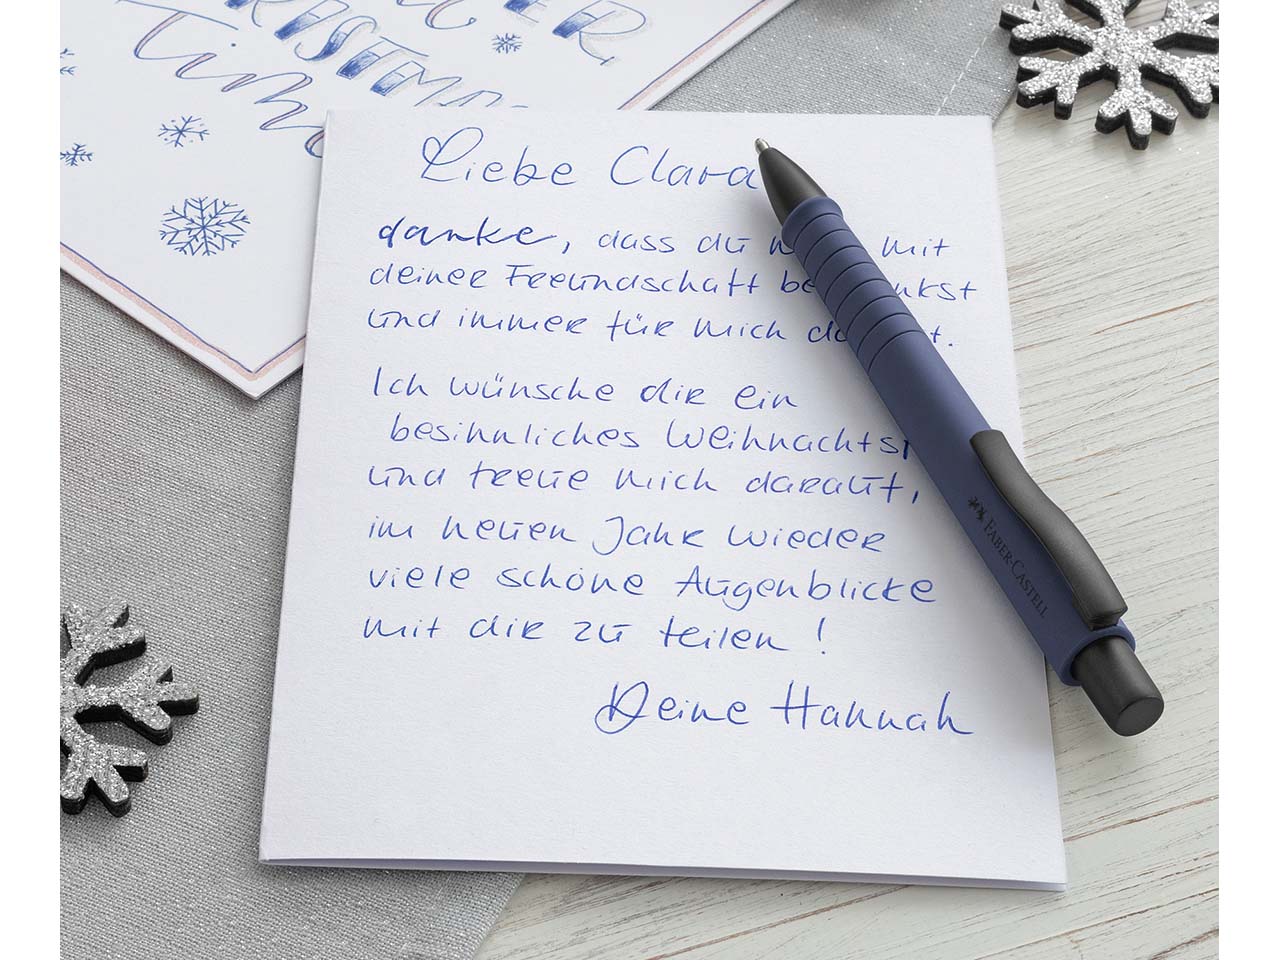 Time
Liebe Clara
danke, dass du mit
deiner Freundschaft
und immer für mich
Ich wünsche dir ein
besinnliches
und freue mich darauf,
im neuen Jahr wieder
viele schöne Augenblicke
mit dir zu teilen!
Deine Hannah
FABER-CASTELL